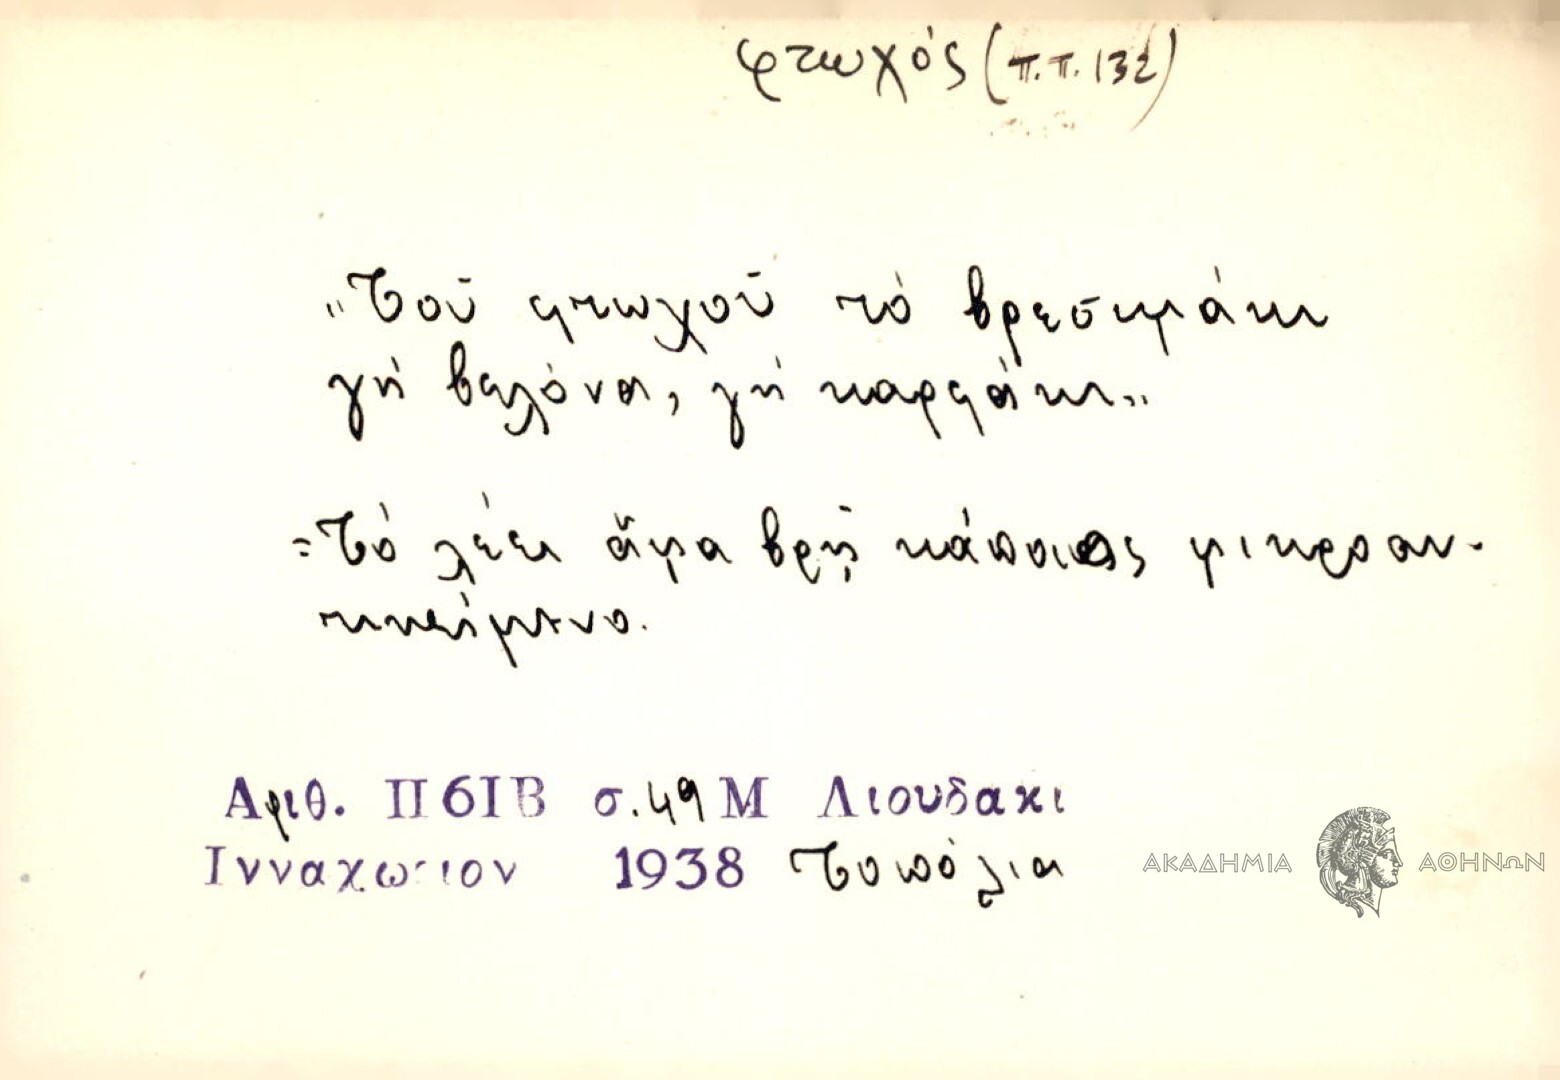 φτωχός (π.π. 132)
„Τοῦ φτωχοῦ τό βρεσιμάκι
γή βελόνα, γή καρφάκι„
=Τό λέει ἅμα βρῇ κάποιος μικροαν-
τικείμενο.
Αριθ. Π61Β σ. 49 Μ Λιουδακι
Ινναχωριον 1938 Τοπόλια
ΑΚΑΔΗΜΙΑ ΑΘΗΝΩΝ